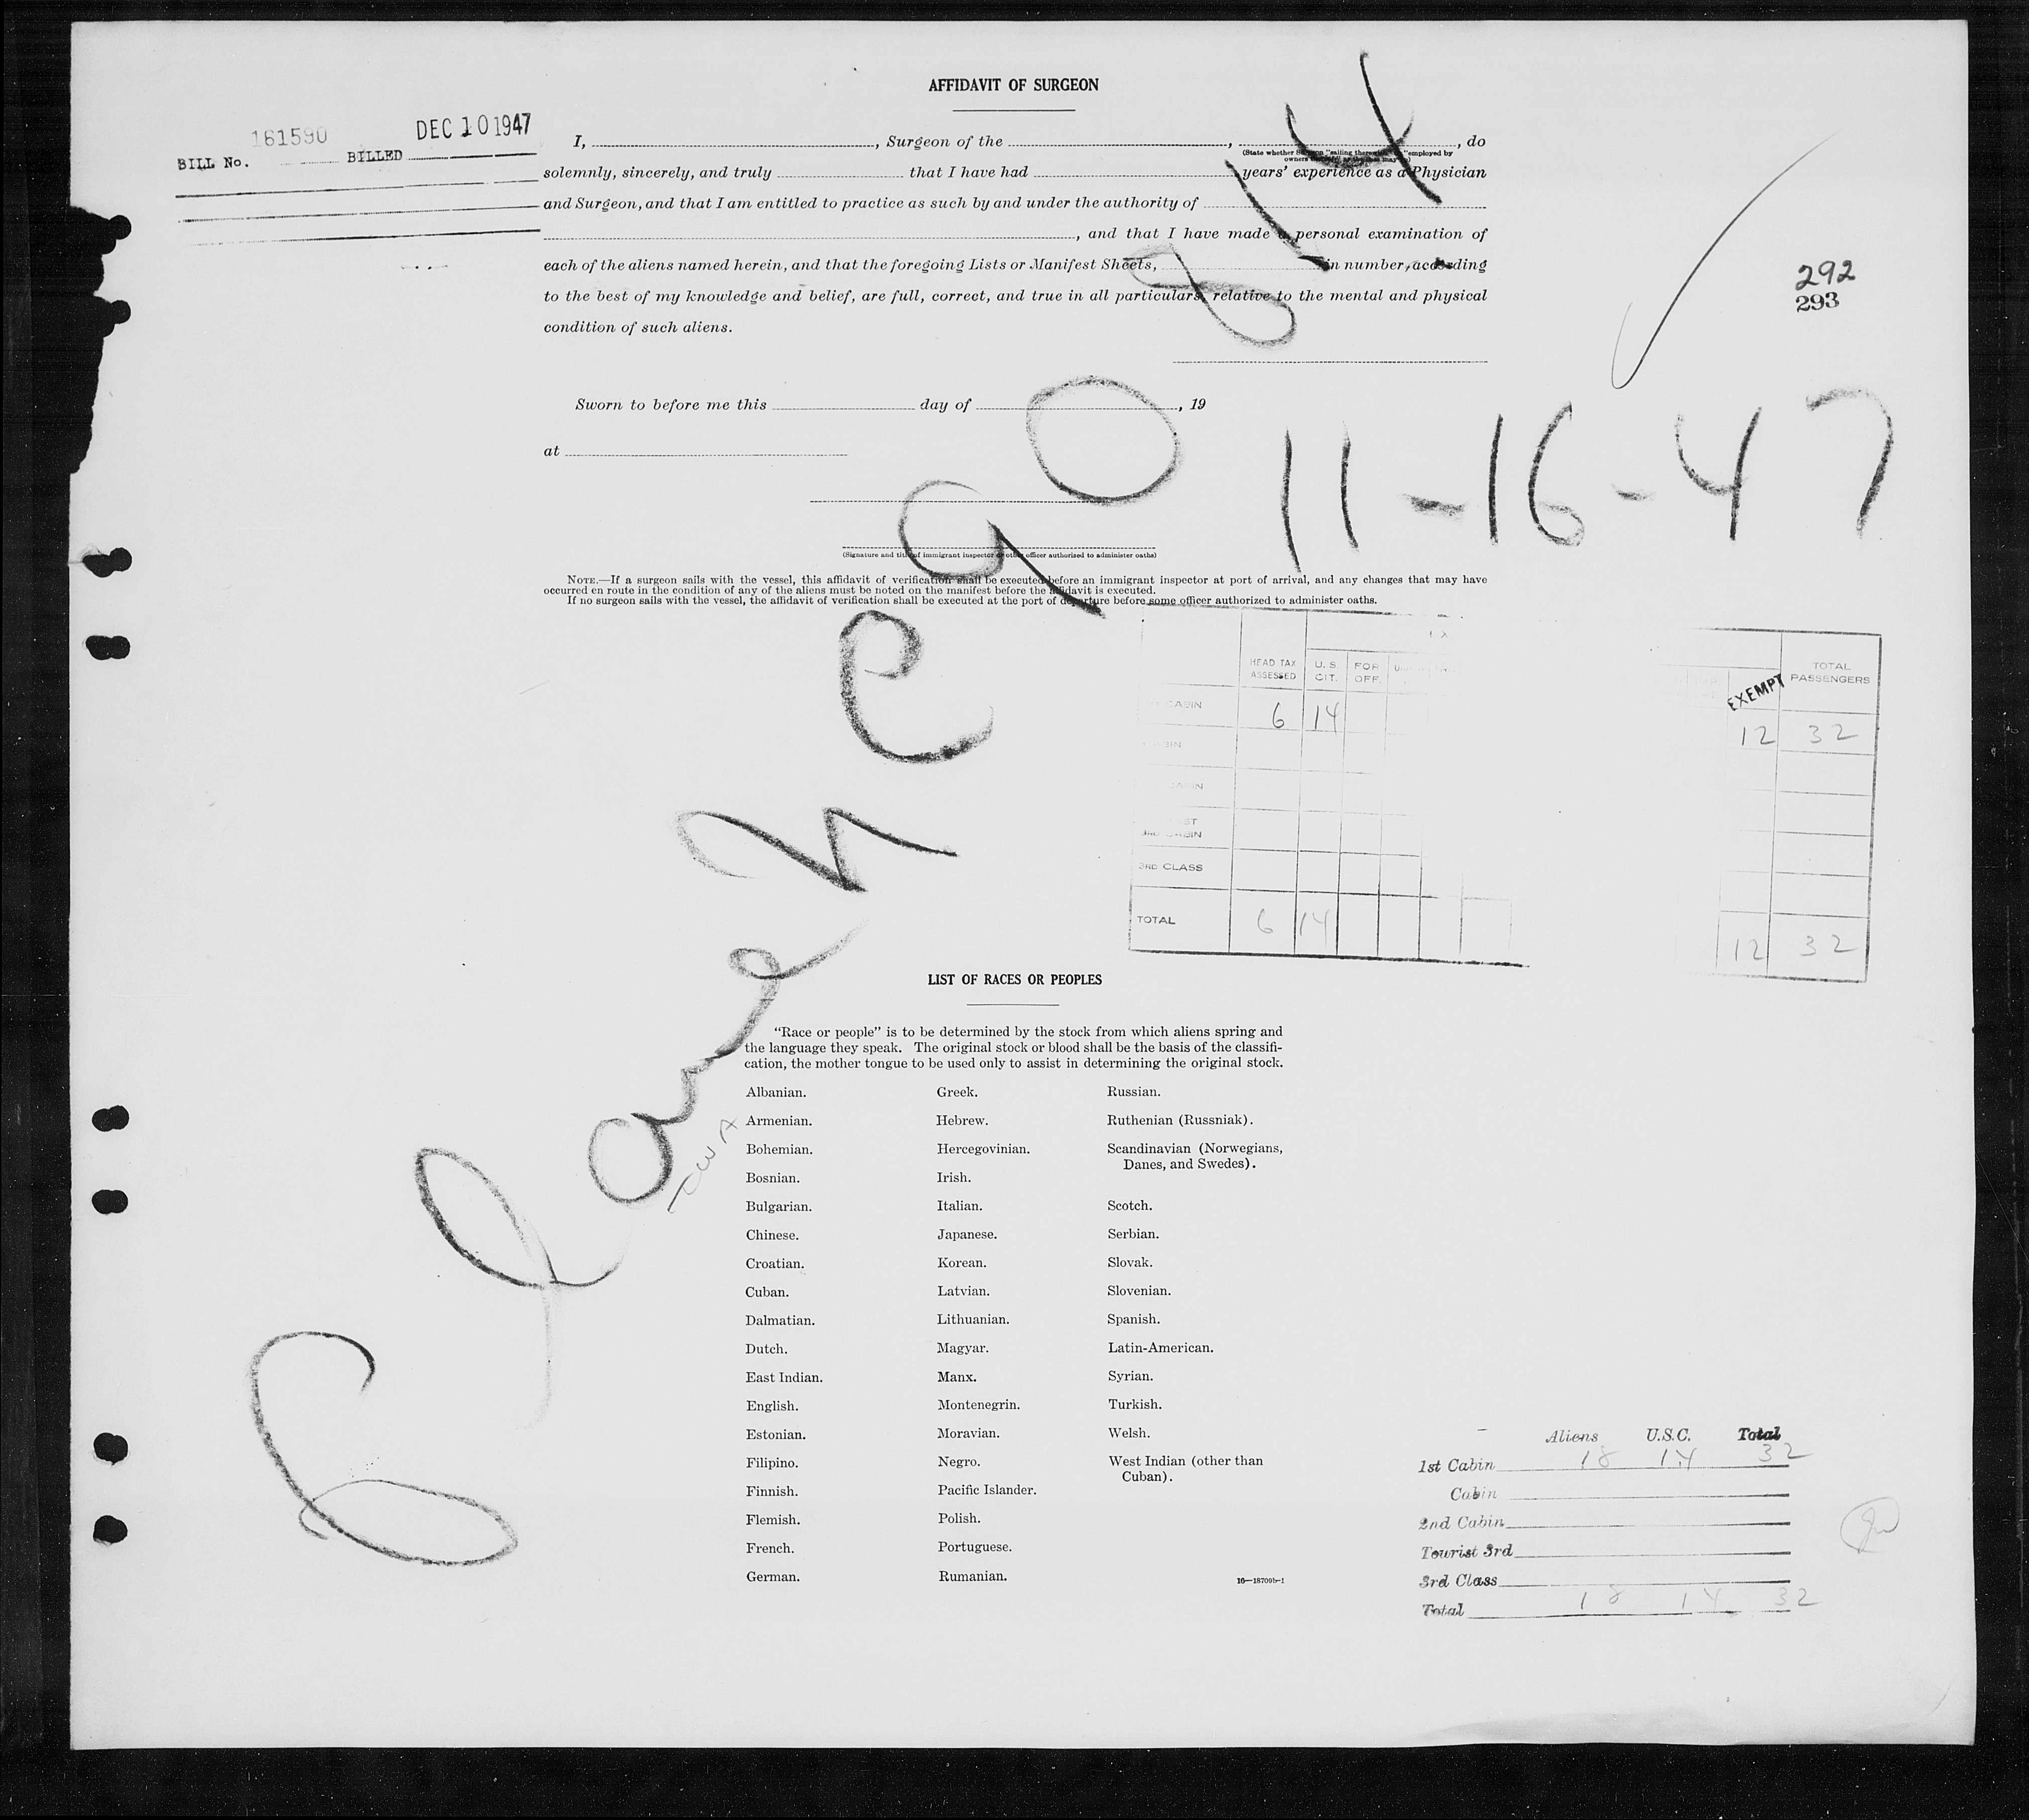 AFFIDAVIT OF SURGEON
161590 DEC 10 1947
BILL No. BILLED
I, , Surgeon of the , , do
(State whether Surgeon "sailing therewith" or "employed by
owners thereof," as the case may be)
solemnly, sincerely, and truly that I have had years' experience as a Physician
and Surgeon, and that I am entitled to practice as such by and under the authority of
, and that I have made a personal examination of
each of the aliens named herein, and that the foregoing Lists or Manifest Sheets, in number, according
to the best of my knowledge and belief, are full, correct, and true in all particulars, relative to the mental and physical
condition of such aliens.
292
293
Sworn to before me this day of , 19
at
11-16-47
(Signature and title of immigrant inspector or other officer authorized to administer oaths)
NOTE.—If a surgeon sails with the vessel, this affidavit of verification shall be executed before an immigrant inspector at port of arrival, and any changes that may have
occurred en route in the condition of any of the aliens must be noted on the manifest before the affidavit is executed.
If no surgeon sails with the vessel, the affidavit of verification shall be executed at the port of departure before some officer authorized to administer oaths.
914
HEAD TAX ASSESSED U. S. CIT. FOR OFF. EXEMPT TOTAL PASSENGERS
CABIN 6 14 12 32
3RD CABIN
3RD CLASS
TOTAL 6 14 12 32
TWA
LIST OF RACES OR PEOPLES
"Race or people" is to be determined by the stock from which aliens spring and
the language they speak. The original stock or blood shall be the basis of the classifi-
cation, the mother tongue to be used only to assist in determining the original stock.
Albanian. Greek. Russian.
Armenian. Hebrew. Ruthenian (Russniak).
Bohemian. Hercegovinian. Scandinavian (Norwegians,
Danes, and Swedes).
Bosnian. Irish.
Bulgarian. Italian. Scotch.
Chinese. Japanese. Serbian.
Croatian. Korean. Slovak.
Cuban. Latvian. Slovenian.
Dalmatian. Lithuanian. Spanish.
Dutch. Magyar. Latin-American.
East Indian. Manx. Syrian.
English. Montenegrin. Turkish.
Estonian. Moravian. Welsh.
Filipino. Negro. West Indian (other than
Cuban).
Finnish. Pacific Islander.
Flemish. Polish.
French. Portuguese.
German. Rumanian.
16—18709b-1
Aliens U.S.C. Total
1st Cabin 18 14 32
Cabin
2nd Cabin
Tourist 3rd
3rd Class
Total 18 14 32